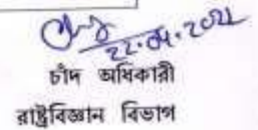 22.04.2021
চাঁদ অধিকারী
রাষ্ট্রবিজ্ঞান বিভাগ